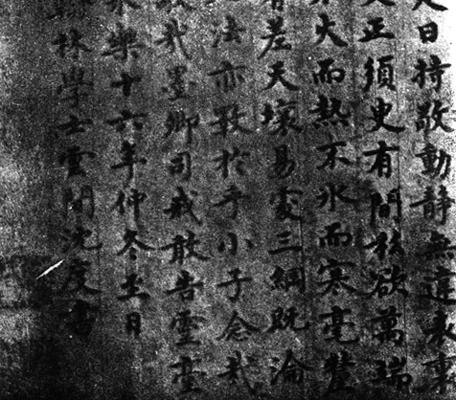 曰持敬動靜無違表裏
交正須臾有間私欲萬端
火而熱不冰而寒毫釐
有差天壤易處三綱既淪
法亦斁於乎小子念哉
哉墨卿司戒敢告靈臺
永樂十六年仲冬至日
翰林學士雲間沈度書